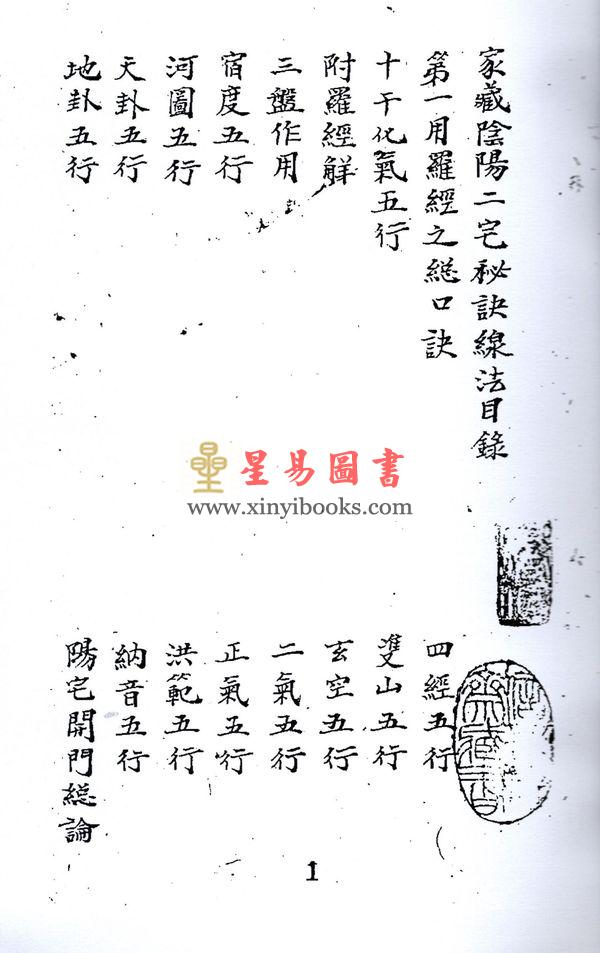 家藏陰陽二宅秘訣線法目錄
第一用羅經之総口訣
四經五行
十干化氣五行
雙山五行
附羅經解
玄空五行
三盤作用
二氣五行
宿度五行
正氣五行
河圖五行
洪範五行
天卦五行
納音五行
地卦五行
陽宅開門総論
星易圖書
www.xinyibooks.com
1